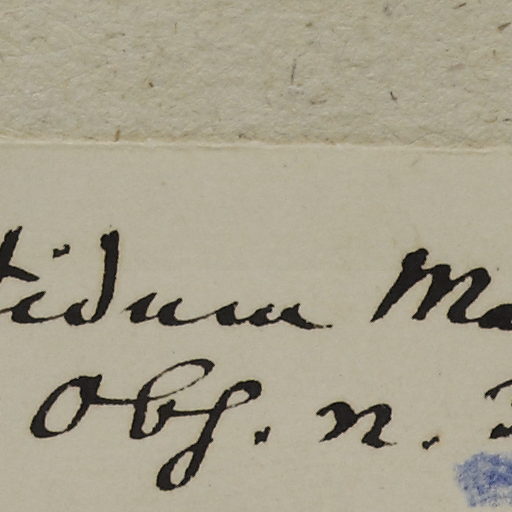 tidum Ma
Obs. n.